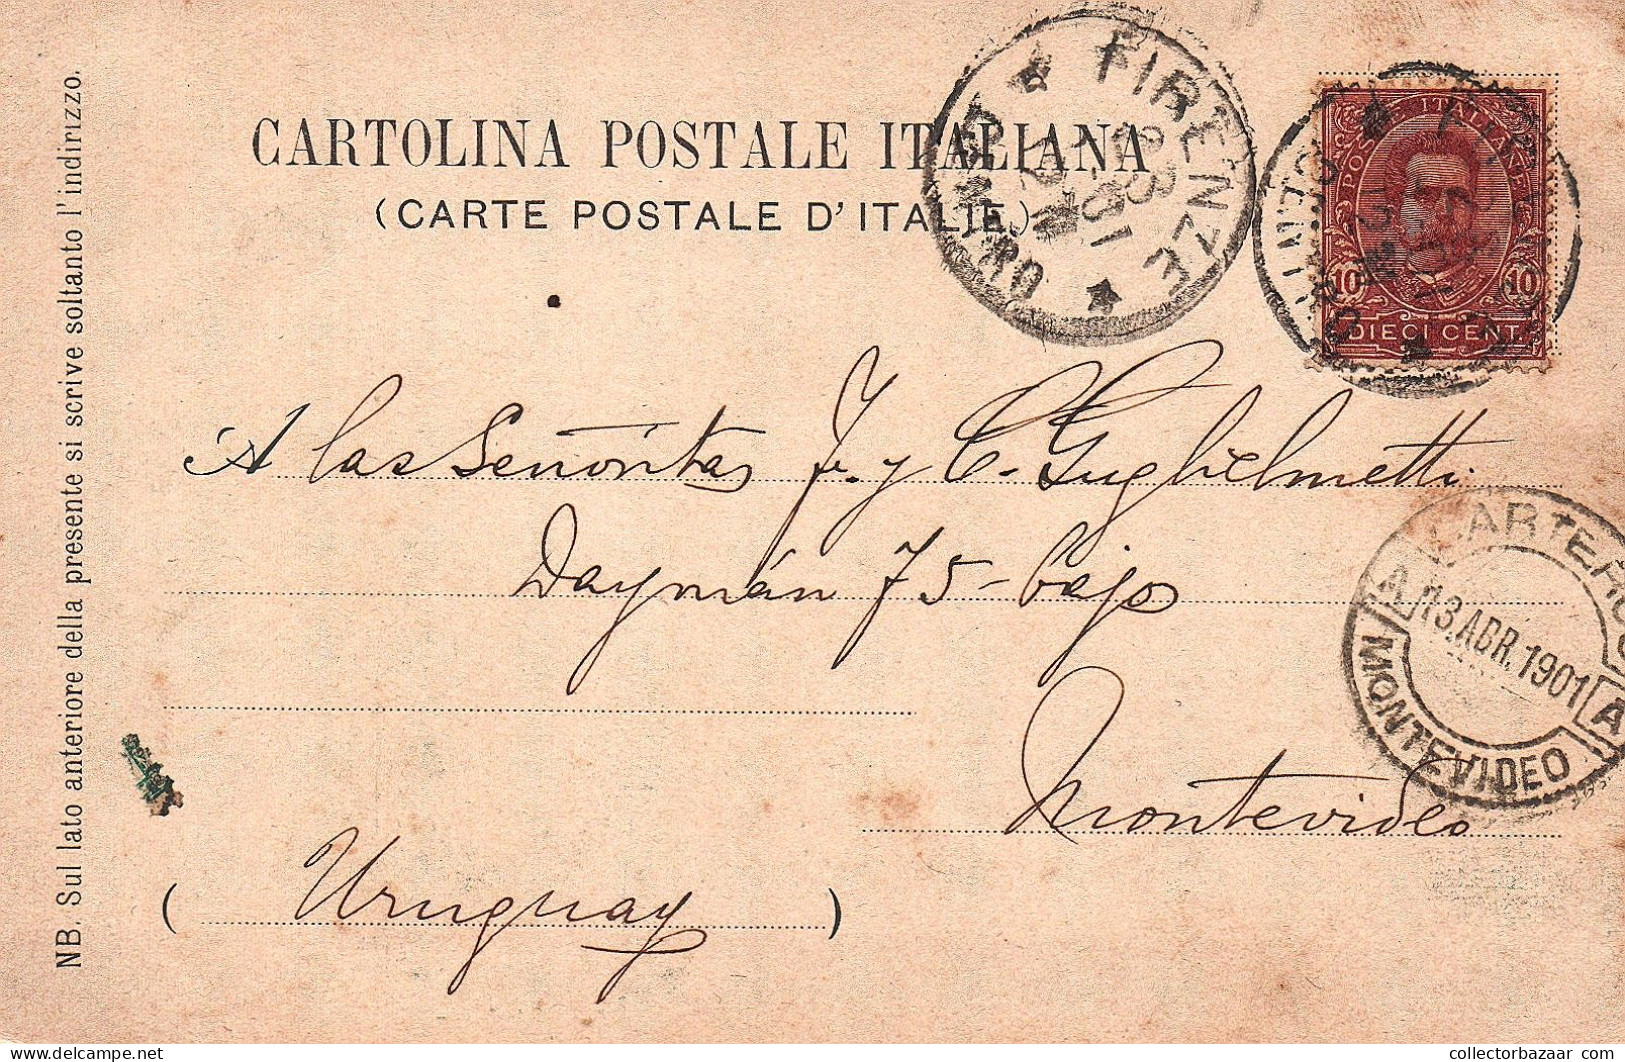 CARTOLINA POSTALE ITALIANA
(CARTE POSTALE D'ITALIE)
NB. Sul lato anteriore della presente si scrive soltanto l'indirizzo.
FIRENZE
POSTE ITALIANE
10 10
DIECI CENT.
A las Señoritas J. y C. Guglielmetti
Daymán 75 - bajo
Montevideo
(Uruguay)
CARTEROS
A 13 ABR. 1901 A
MONTEVIDEO
collectorbazaar.com